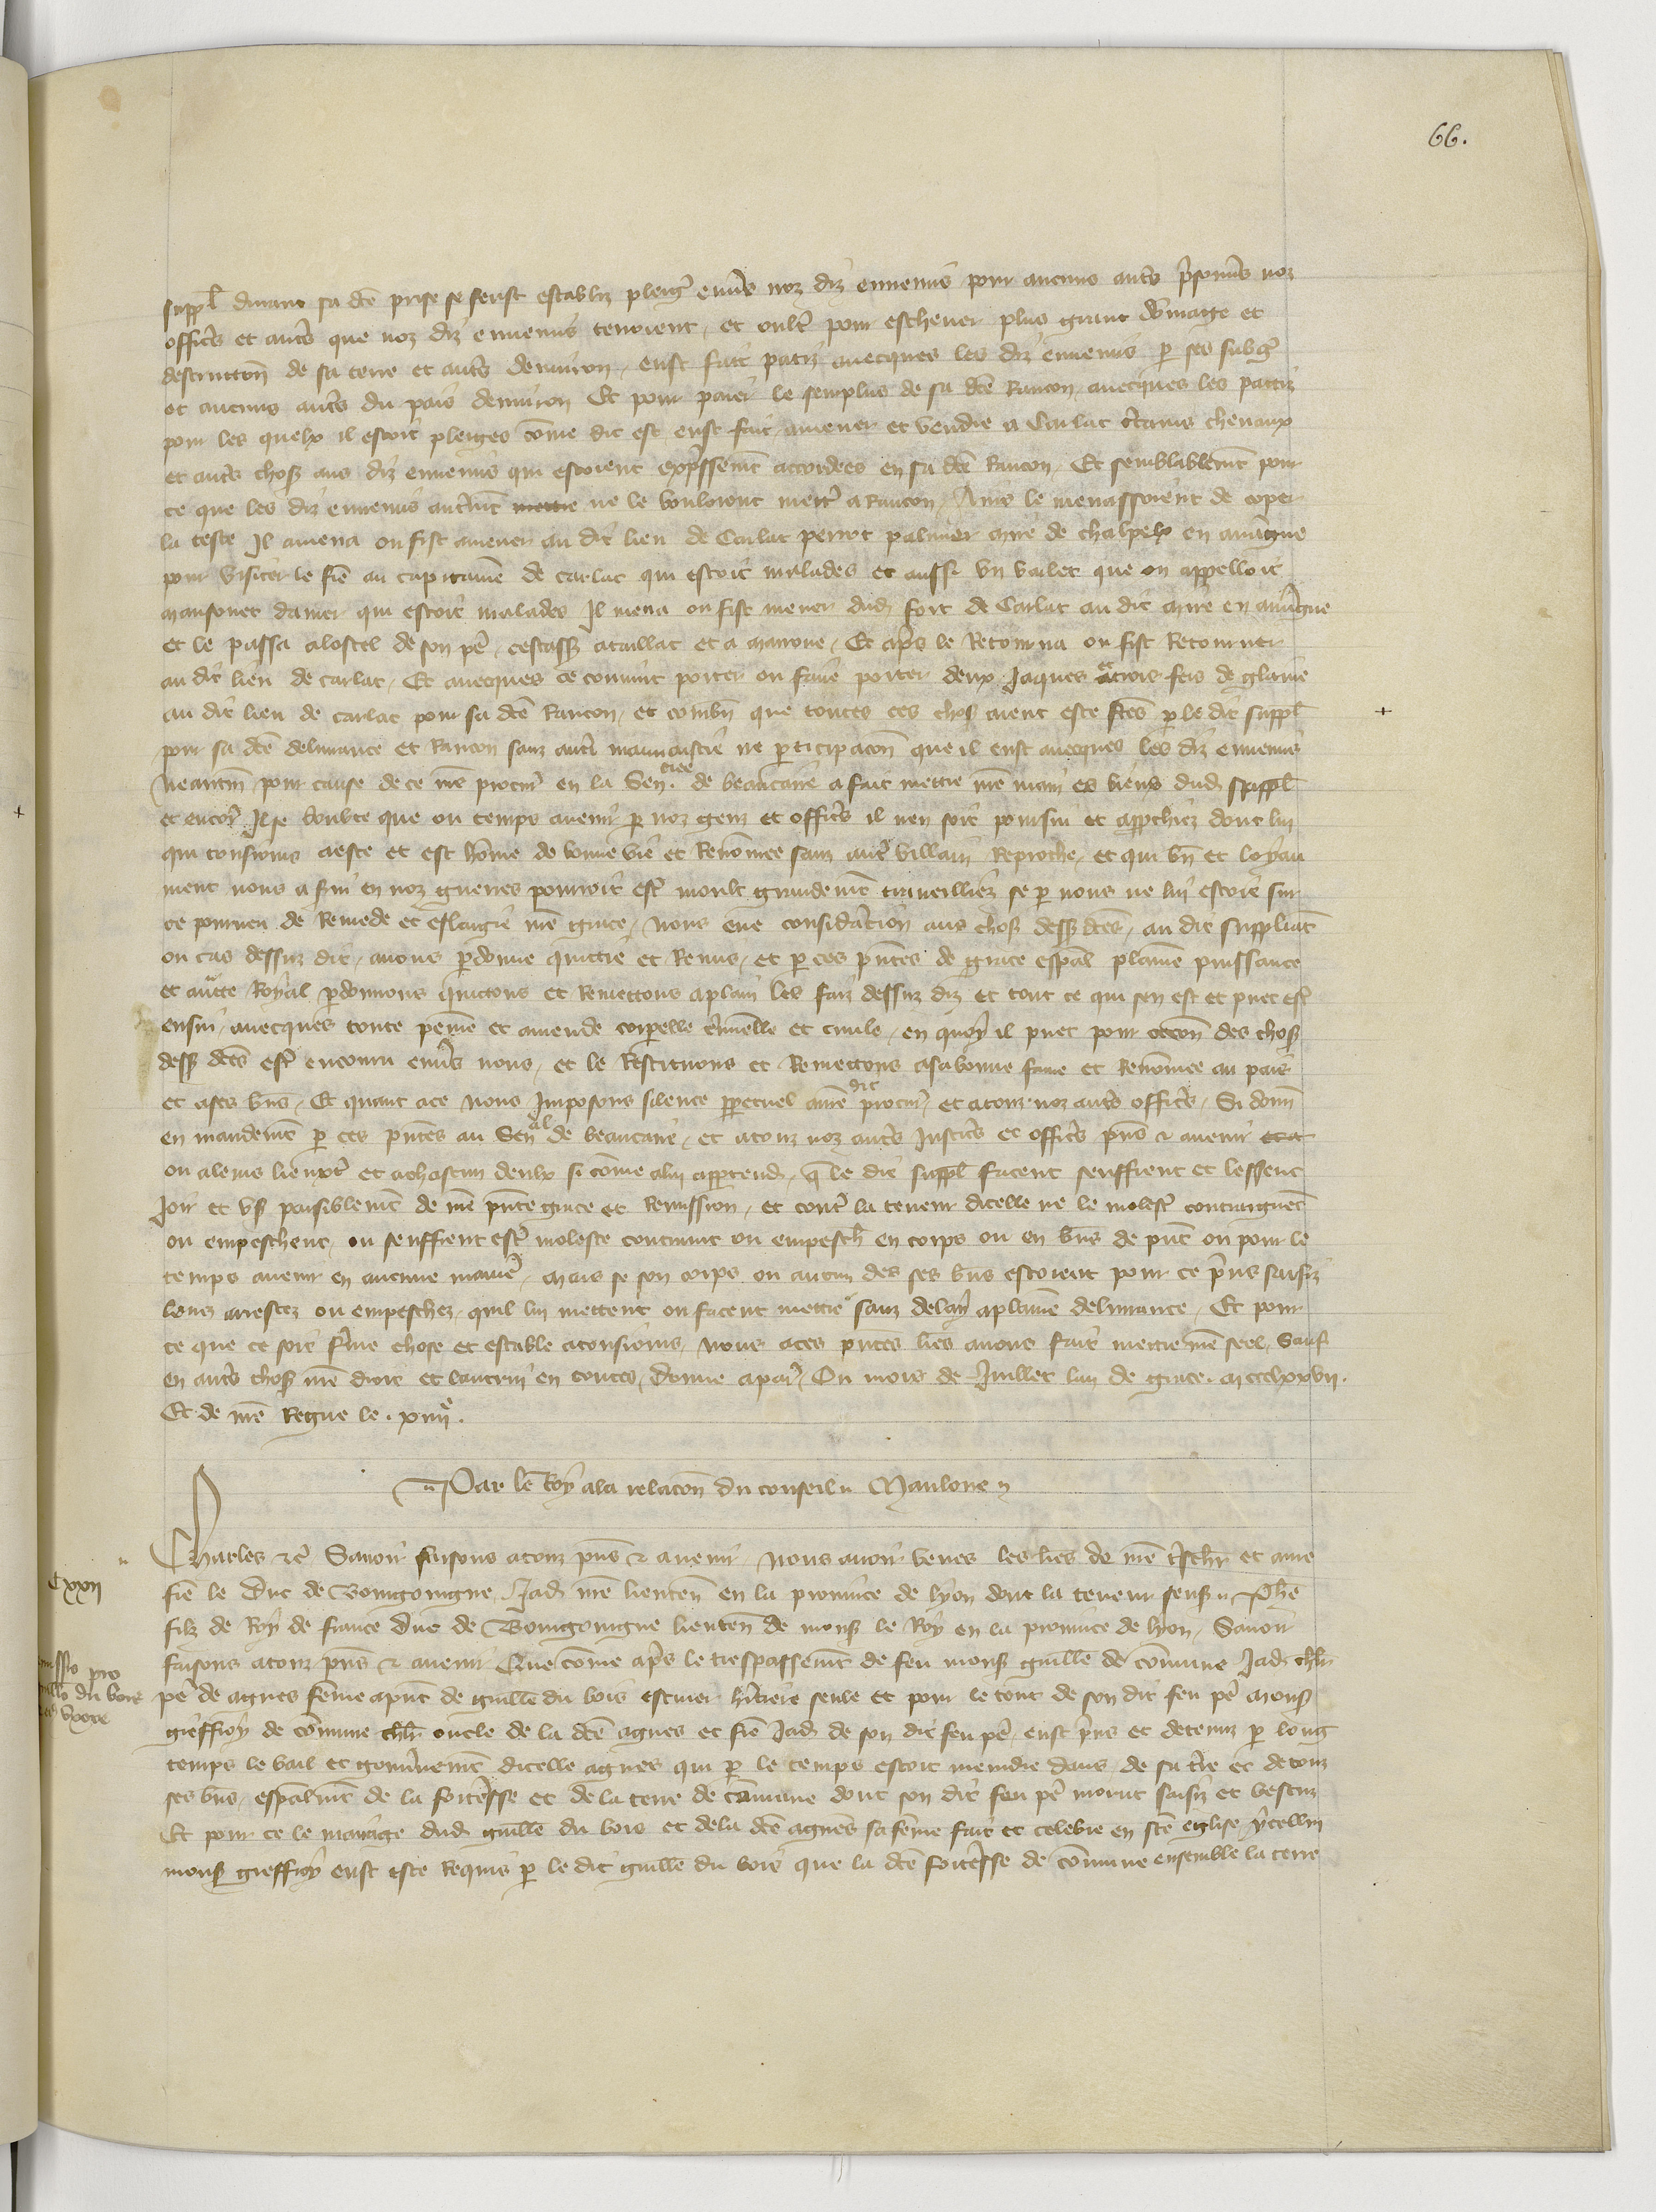 66.
suppl durant sa dce prise se feust establiz pleige envs noz diz ennemis pour aucuns autres prisonniers noz
officrs et autrs que noz diz ennemis tenoient, et oultr pour eschever plus grant domage et
destruction de sa terre et autrs denviron, eust fait patiz avecques les diz ennemis p ses subgez
et aucuns autrs du pais denviron Et pour paier le semplus de sa dce Rancon avecques les pattiz
pour les quelx il estoit pleiges come dit est eust fait amener et vendre a Carlat crtains chevaux
et autrs chos aus diz ennemis qui estoient expssemt accordees en sa dce Rancon, Et semblablemt pour
ce que les diz ennemis autremt mettre ne le vouloient mettr a Rancon, Ains le menassoient de coper
la teste Il amena ou fist amener au dit lieu de Carlat perrot palmier mire de en auvgne
pour visiter le fre au capitaine de carlat qui estoit malades et aussi un vallet que on appelloit
mansonet damer qui estoit malades Il mena ou fist mener dud fort de Carlat au dit mire en auvgne
et le passa a lostel de son pe, cestass ataillat et a marrone, Et aps le Retourna ou fist Retourner
au dit lieu de carlat, Et avecques ce convint porter ou faire porter deux Jaques et trois fers de glaive
au dit lieu de carlat pour sa dce Rancon, et combn que toutes ces chos aient este ftes p le dit suppl
pour sa dce delivrance et Rancon sanz autre mauvaistie ne pticipacon que il eust avecques les diz ennemis
Neantm pour cause de ce nre procur en la Senciee de beaucaire a fait mettre nre main es biens dud suppl
et encor Ilse doubte que ou temps avenir p noz genz et officrs il nen soit poursui et approchiez dont lui
qui tousjours a este et est home de bonne vie et Renomee sanz autr villain Reproche, et qui bn et loyau
ment nous a servi en noz guerres pourroit estr moult grandemt traveilliez se p nous ne lui estoit sur
ce pourveu de Remede et eslargie nre grace, Nous eue consideration aus chos dess dces, au dit suppliat
ou cas dessus dit, avons pdonne quittie et Remis, et p ces pntes de grace espal plaine puissance
et aucte Royal pdonnons quittons et Remettons aplain les faiz dessus diz et tout ce qui sen est et puet estr
ensui, avecques toute peine et amende corpelle criminelle et civile, en quoy il puet pour occon des chos
dess dces estr encouru envs nous, et le Restituons et Remettons asabonne fame et Renomee au pais
et ases bns, Et quant ace Nous Imposons silence ppetuel anre dit procur, et atouz noz autrs officrs, Si donn
en mandemt p ces pntes au Senal de beaucaire, et atouz noz autrs Justicrs et officrs pns & avenir
ou aleurs lieuxtn et achascun deulx si come alui apprtendra, q le dit suppl facent seuffrent et lessent
Joir et us paisiblemt de nre pnte grace et Remission, et contr la teneur dicelle ne le molestr contraignet
ou empeschent, ou seuffrent estr moleste contraint ou empesch en corps ou en bns de pnt ou pour le
temps avenir en aucune manie, mais se son corps ou aucun des ses bns estoient pour ce prins saisiz
levez arrestez ou empeschez, quil lui mettent ou facent mettre sanz delay aplaine delivrance, Et pour
ce que ce soit ferme chose et estable atousjours, Nous aces pntes lres avons fait mettre nre seel, Sauf
en autrs chos nre droit et lautrui en toutes, Donne apar, Ou mois de Juillet lan de grace. mccclxxvii.
Et de nre Regne le. xiiiie.
Par le Roy ala relacon du conseil Maulone
Cxxii
Charles &c Savoir faisons atouz pns & avenir Nous avoir veues les lres de nre trescher et ame
fre le Duc de Bourgoingne, Jad nre lieuten en la province de lyon dont la teneur sensuit Phe
filz de Roy de france duc de Bourgoingne lieuten de mons le Roy en la province de lyon, Savoir
missio pro
Guillo du bois
et ejus uxore
faisons atouz pns & avenir Que come aps le trespassemt de feu mons guille de comune Jad chlr
pe de agnes feme apnt de guille du bois escuier heritiere seule et pour le tout de son dit feu pe mons
gieffroy de comune chlr oncle de la dce agnes et fre Jad de son dit feu pe, eust prins et detenuz p long
temps le bail et gouvnemt dicelle agnes qui p le temps estoit meindre dans, de sa tre et de touz
ses bns, espalmt de la forteresse et de la terre de comune dont son dit feu pe morut saisiz et vestuz
Et pour ce le mariage dud guille du bois et dela dce agnes sa feme fait et celebre en ste eglise ycellui
mons gieffroy eust este Requis p le dit guille du bois que la dce forteresse de comune ensemble la terre